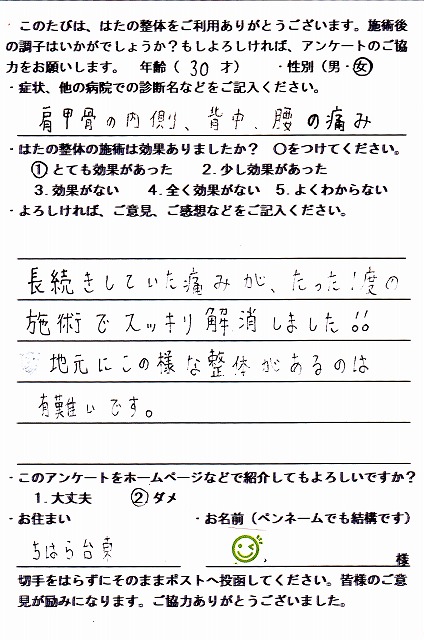 ・このたびは、はたの整体をご利用ありがとうございます。施術後
の調子はいかがでしょうか？もしよろしければ、アンケートのご協
力をお願いします。 年齢（ 30 才） ・性別（男・女）
・症状、他の病院での診断名などをご記入ください。
肩甲骨の内側、背中、腰の痛み
・はたの整体の施術は効果ありましたか？ 〇をつけてください。
1.とても効果があった 2.少し効果があった
3.効果がない 4.全く効果がない 5.よくわからない
・よろしければ、ご意見、ご感想などをご記入ください。
長続きしていた痛みが、たった1度の
施術でスッキリ解消しました!!
地元にこの様な整体があるのは
有難いです。
・このアンケートをホームページなどで紹介してもよろしいですか？
1.大丈夫 2ダメ
・お住まい ・お名前（ペンネームでも結構です）
ちはら台東 様
切手をはらずにそのままポストへ投函してください。皆様のご意
見が励みになります。ご協力ありがとうございました。